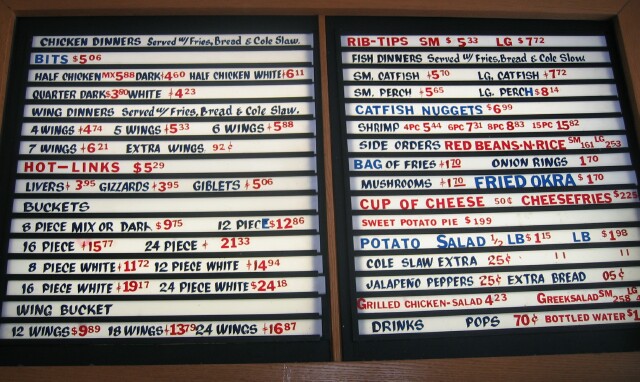 CHICKEN DINNERS Served w/ Fries, Bread & Cole Slaw.
BITS $5.06
HALF CHICKEN MX 5.88 DARK 4.60 HALF CHICKEN WHITE 6.11
QUARTER DARK $3.60 WHITE 4.23
WING DINNERS Served w/ Fries, Bread & Cole Slaw.
4 WINGS 4.74 5 WINGS 5.33 6 WINGS 5.88
7 WINGS 6.21 EXTRA WINGS 92¢
HOT-LINKS $5.29
LIVERS 3.95 GIZZARDS 3.95 GIBLETS 5.06
BUCKETS
8 PIECE MIX OR DARK $9.75 12 PIECE $12.86
16 PIECE 15.77 24 PIECE 21.33
8 PIECE WHITE 11.72 12 PIECE WHITE 14.94
16 PIECE WHITE 19.17 24 PIECE WHITE $24.18
WING BUCKET
12 WINGS $9.89 18 WINGS 13.79 24 WINGS 16.87
RIB-TIPS SM $5.33 LG $7.72
FISH DINNERS Served w/ Fries, Bread & Cole Slaw
SM. CATFISH 5.70 LG. CATFISH 7.72
SM. PERCH 5.65 LG. PERCH $8.14
CATFISH NUGGETS $6.99
SHRIMP 4PC 5.44 6PC 7.31 8PC 8.83 15PC 15.82
SIDE ORDERS RED BEANS-N-RICE SM 1.61 LG 2.53
BAG OF FRIES 1.70 ONION RINGS 1.70
MUSHROOMS 1.70 FRIED OKRA $1.70
CUP OF CHEESE 50¢ CHEESEFRIES $2.25
SWEET POTATO PIE $1.99
POTATO SALAD 1/2 LB $1.15 LB $1.98
COLE SLAW EXTRA 25¢ " "
JALAPENO PEPPERS 25¢ EXTRA BREAD 05¢
GRILLED CHICKEN-SALAD 4.23 GREEK SALAD SM 2.58 LG
DRINKS POPS 70¢ BOTTLED WATER $1